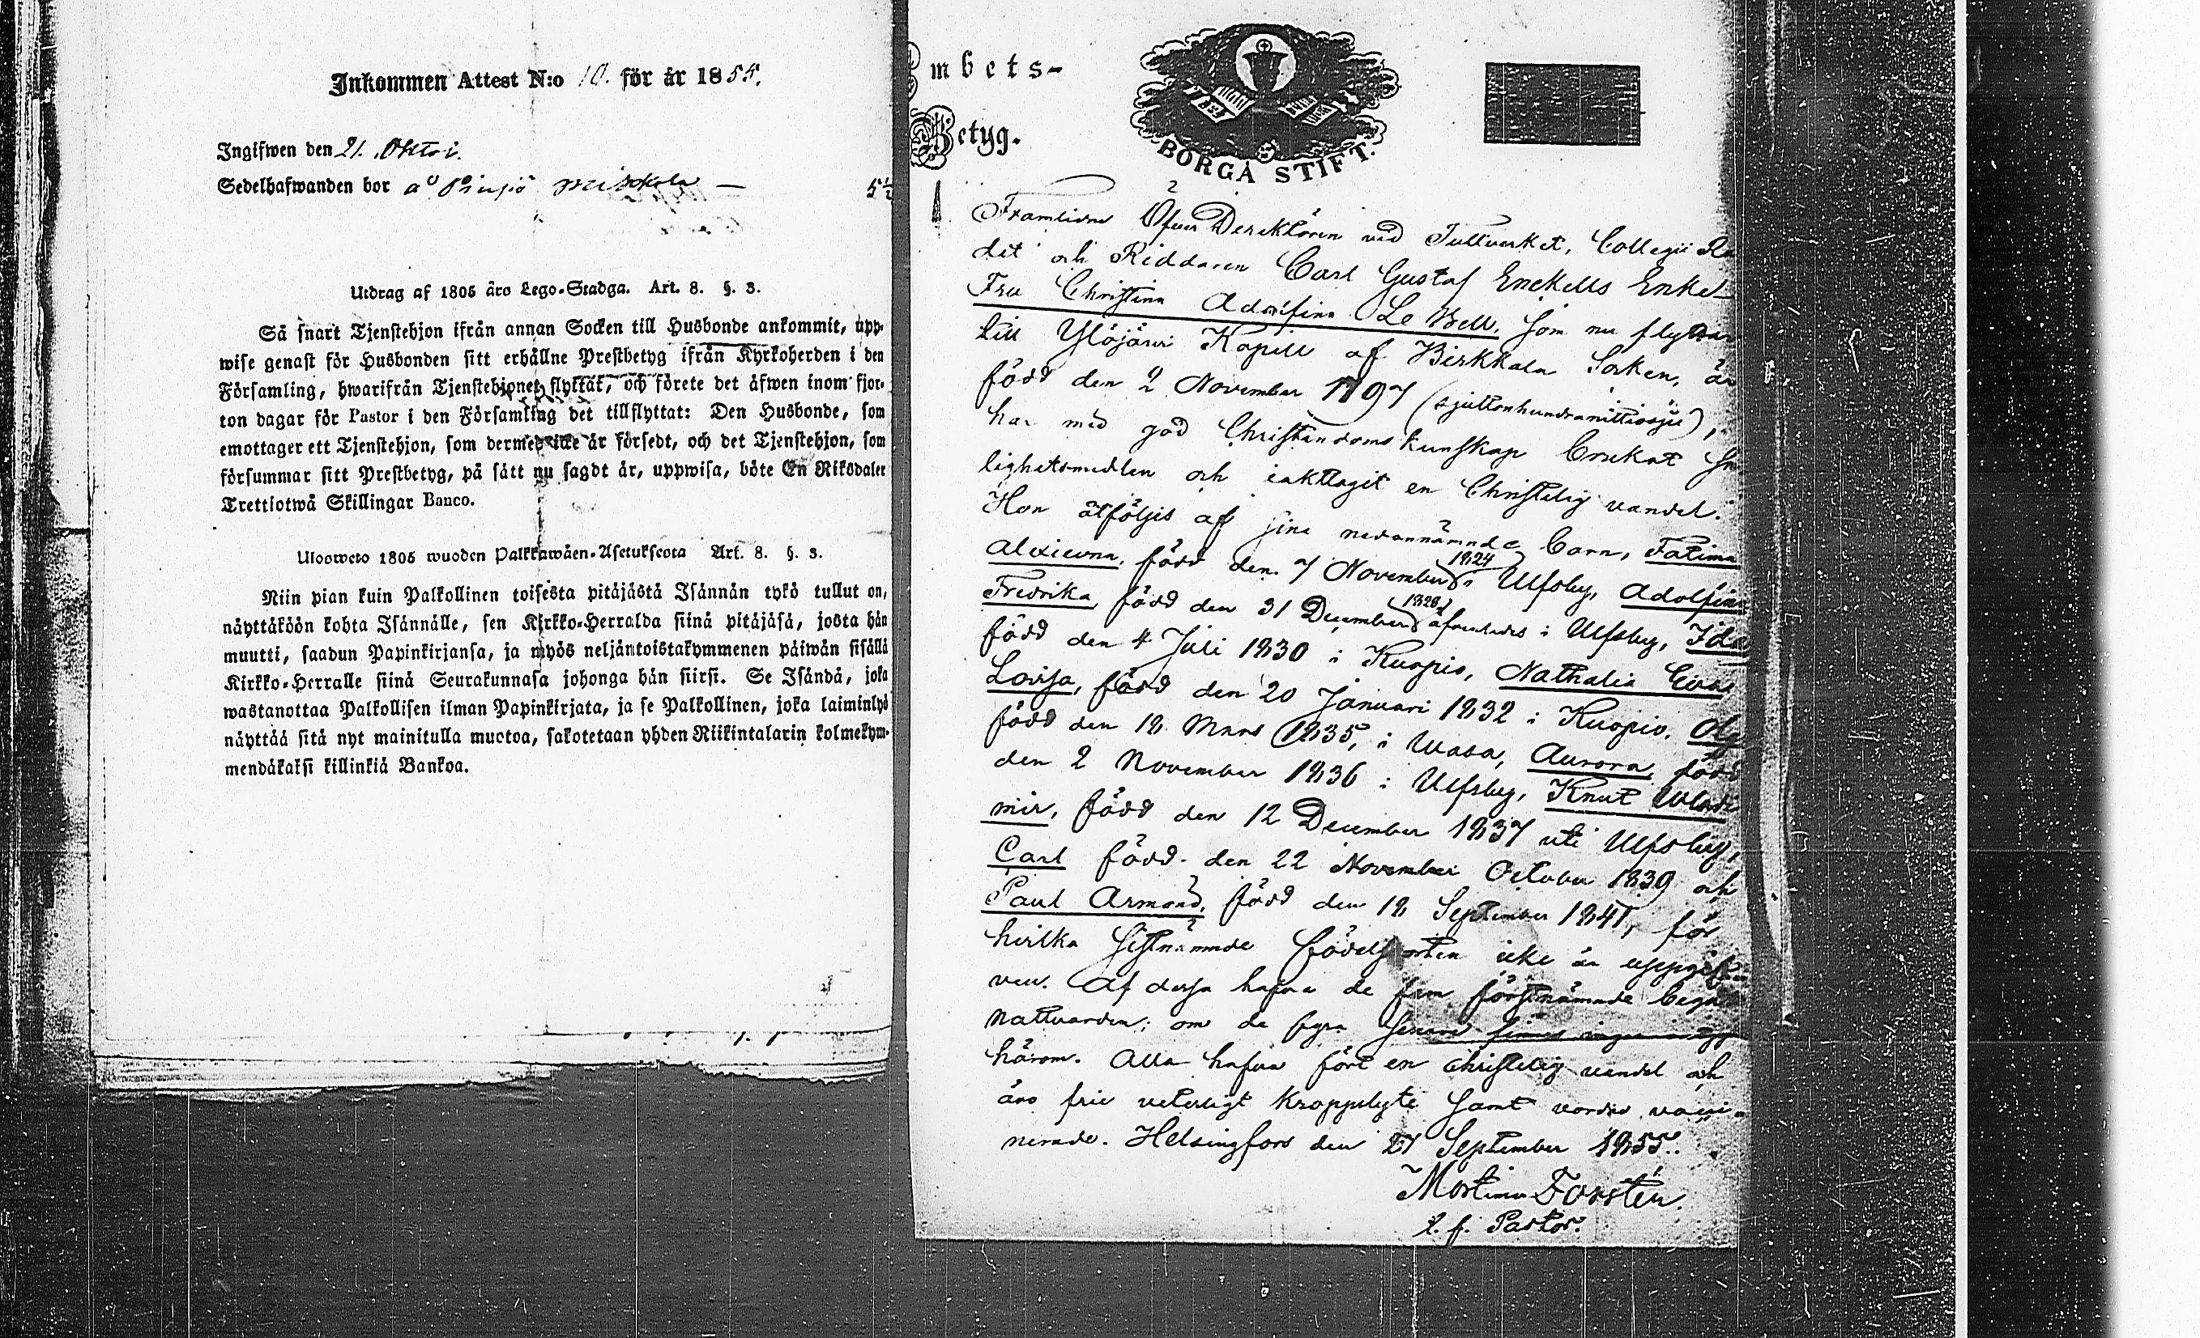 Inkommen Attest N:o 10. för år 1855.
Ingifwen den 21. Oktbr.
Sedelhafwanden bor å
Utdrag af 1805 års Lego-Stadga. Art. 8. §. 3.
Så snart Tjenstehjon ifrån annan Socken till Husbonde ankommit, upp-
wise genast för Husbonden sitt erhållne Prestbetyg ifrån Kyrkoherden i den
Församling, hwarifrån Tjenstehjonet flyttat, och förete det äfwen inom fjor-
ton dagar för Pastor i den Församling det tillflyttat: Den Husbonde, som
emottager ett Tjenstehjon, som dermed icke är försedt, och det Tjenstehjon, som
försummar sitt Prestbetyg, på sätt nu sagdt är, uppwisa, böte En Riksdaler
Trettiotwå Skillingar Banco.
Ulosweto 1805 wuoden Palkkawäen-Asetuksesta Art. 8. §. 3.
Niin pian kuin Palkollinen toisesta pitäjästä Isännän tykö tullut on,
näyttäköön kohta Isännälle, sen Kirkko-Herralda siinä pitäjäsä, josta hän
muutti, saadun Papinkirjansa, ja myös neljäntoistakymmenen päiwän sisällä
Kirkko-Herralle siinä Seurakunnasa johonga hän siirsi. Se Isändä, joka
wastanottaa Palkollisen ilman Papinkirjata, ja se Palkollinen, joka laiminlyö
näyttää sitä nyt mainitulla muotoa, sakotetaan yhden Riikintalarin kolmekym-
mendäkaksi killinkiä Bankoa.
Embets-
Betyg.
BORGÅ STIFT.
Framlidne Öfver Direktören vid Tullverket, Collegii Rå
det och Riddaren Carl Gustaf Enckells Enke-
Fru Christina Adolfina Le Bell, som nu flyttar
till Ylöjärvi Kapell af Birkkala Socken, är
född den 2 November 1797 (sjuttonhundranittiosju),
har med god Christendoms kunskap brukat Sa
lighetsmedlen och iakttagit en Christelig vandel.
Hon åtföljes af sina nedannämnde barn, Fatima
Alexievna, född den 7 November 1824 i Ulfsby, Adolfina
Fredrika född den 31 December 1828 i Ulfsby, Ida
född den 4 Juli 1830 i Kuopio, Nathalia Eva
Lovisa, född den 20 Januari 1832 i Kuopio, Ol
född den 18 Mars 1835, i Wasa, Aurora, född
den 2 November 1836 i Ulfsby, Knut Wladi
mir, född den 12 December 1837 uti Ulfsby,
Carl född den 22 November October 1839 och
Paul Armand, född den 18 September 1841, för
hvilka sistnämnde födelseorten icke är uppgif
ven. Af dessa hafva de fem förstnämnde begått
Nattvarden; om de fyra senare finnes ingen
härom. Alla hafva fört en Christelig vandel och
äro frie veterligt kroppslyte samt vordne vacci-
nerade. Helsingfors den 27 September 1855.
Mortimer Forstén.
t. f. Pastor.